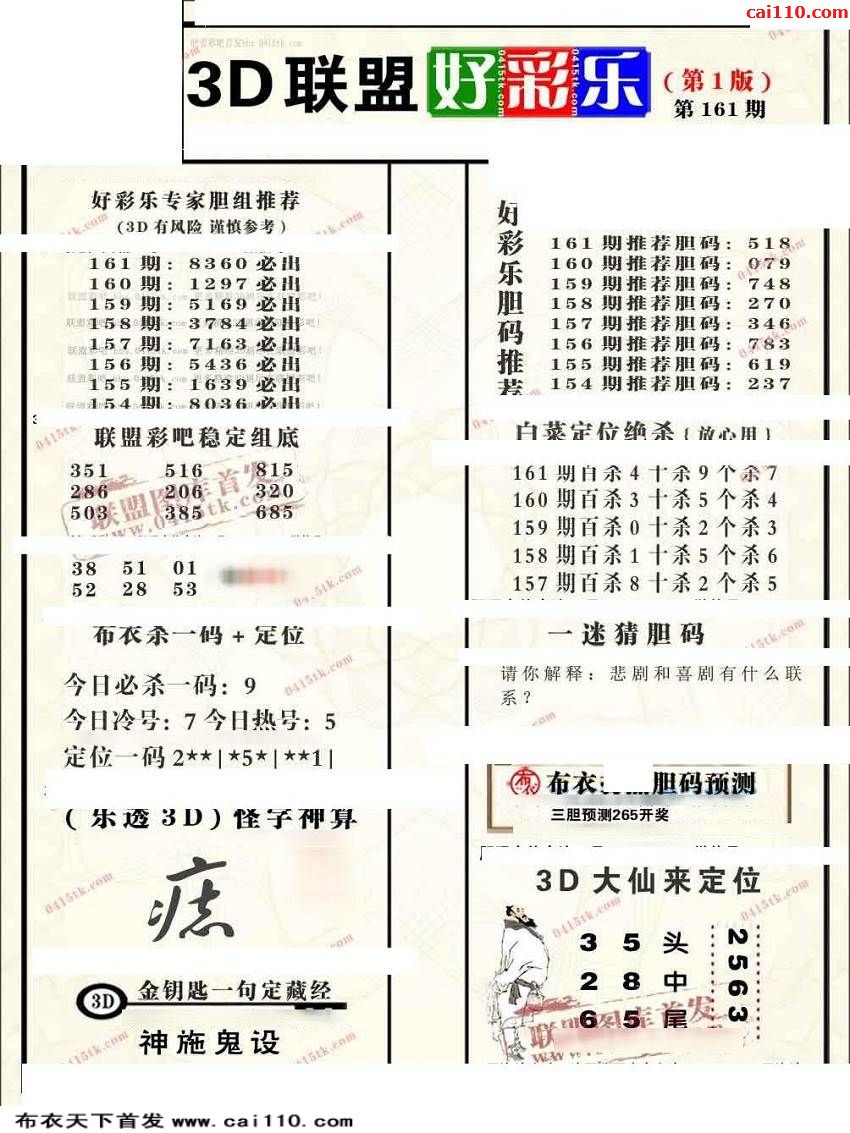 cai110.com
3D联盟好彩乐(第1版)
第161期
好彩乐专家胆组推荐
(3D有风险 谨慎参考)
161期: 8360必出
160期: 1297必出
159期: 5169必出
158期: 3784必出
157期: 7163必出
156期: 5436必出
155期: 1639必出
154期: 8036必出
联盟彩吧稳定组底
351 516 815
286 206 320
503 385 685
38 51 01
52 28 53
布衣杀一码+定位
今日必杀一码: 9
今日冷号: 7 今日热号: 5
定位一码2**|*5*|**1|
(乐透3D)怪字神算
痣
3D 金钥匙一句定藏经
神施鬼设
好彩乐胆码推荐
161期推荐胆码: 518
160期推荐胆码: 079
159期推荐胆码: 748
158期推荐胆码: 270
157期推荐胆码: 346
156期推荐胆码: 783
155期推荐胆码: 619
154期推荐胆码: 237
白菜定位绝杀{放心用}
161期百杀4十杀9个杀7
160期百杀3十杀5个杀4
159期百杀0十杀2个杀3
158期百杀1十杀5个杀6
157期百杀8十杀2个杀5
一迷猜胆码
请你解释: 悲剧和喜剧有什么联
系?
布衣 胆码预测
三胆预测265开奖
3D大仙来定位
3 5 头
2 8 中
6 5 尾
2563
联盟图库首发
www.0415tk.com
布衣天下首发 www.cai110.com